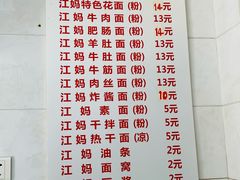 江妈特色花面(粉) 14元
江妈牛肉面(粉) 13元
江妈肥肠面(粉) 14元
江妈羊肚面(粉) 13元
江妈牛肚面(粉) 13元
江妈牛筋面(粉) 13元
江妈肉丝面(粉) 13元
江妈炸酱面(粉) 10元
江妈素面(粉) 5元
江妈干拌面(粉) 5元
江妈热干面(凉) 5元
江妈油条 2元
江妈面窝 2元
2元